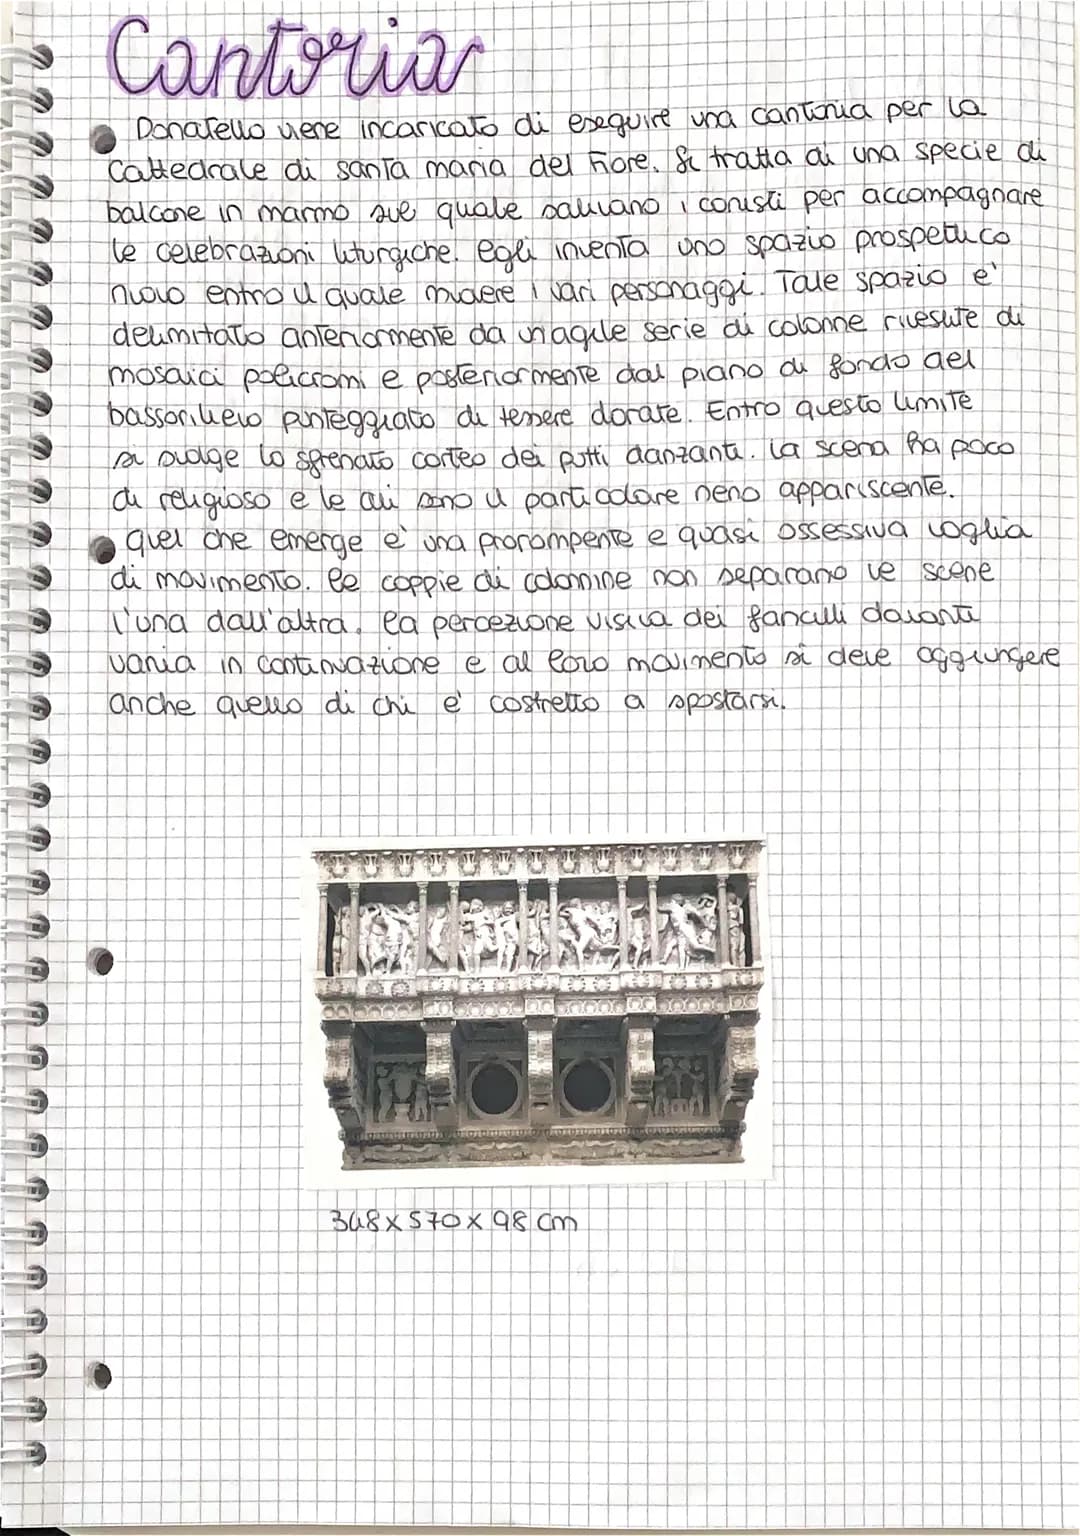 Cantoria
Donatello viene incaricato di eseguire una cantoria per la
cattedrale di santa maria del Fiore. Si tratta di una specie di
balcone in marmo sul quale salivano i coristi per accompagnare
le celebrazioni liturgiche. egli inventa uno spazio prospettico
nuovo entro il quale muovere i vari personaggi. Tale spazio e'
delimitato anteriormente da un'agile serie di colonne rivestite di
mosaici policromi e posteriormente dal piano di fondo del
bassorilievo punteggiato di tessere dorate. Entro questo limite
si svolge lo sfrenato corteo dei putti danzanti. la scena ha poco
di religioso e le ali sono il particolare meno appariscente.
quel che emerge e' una prorompente e quasi ossessiva voglia
di movimento. le coppie di colonnine non separano le scene
l'una dall'altra. la percezione visiva dei fanciulli davanti
varia in continuazione e al loro movimento si deve aggiungere
anche quello di chi e' costretto a spostarsi.
348 x 570 x 98 cm